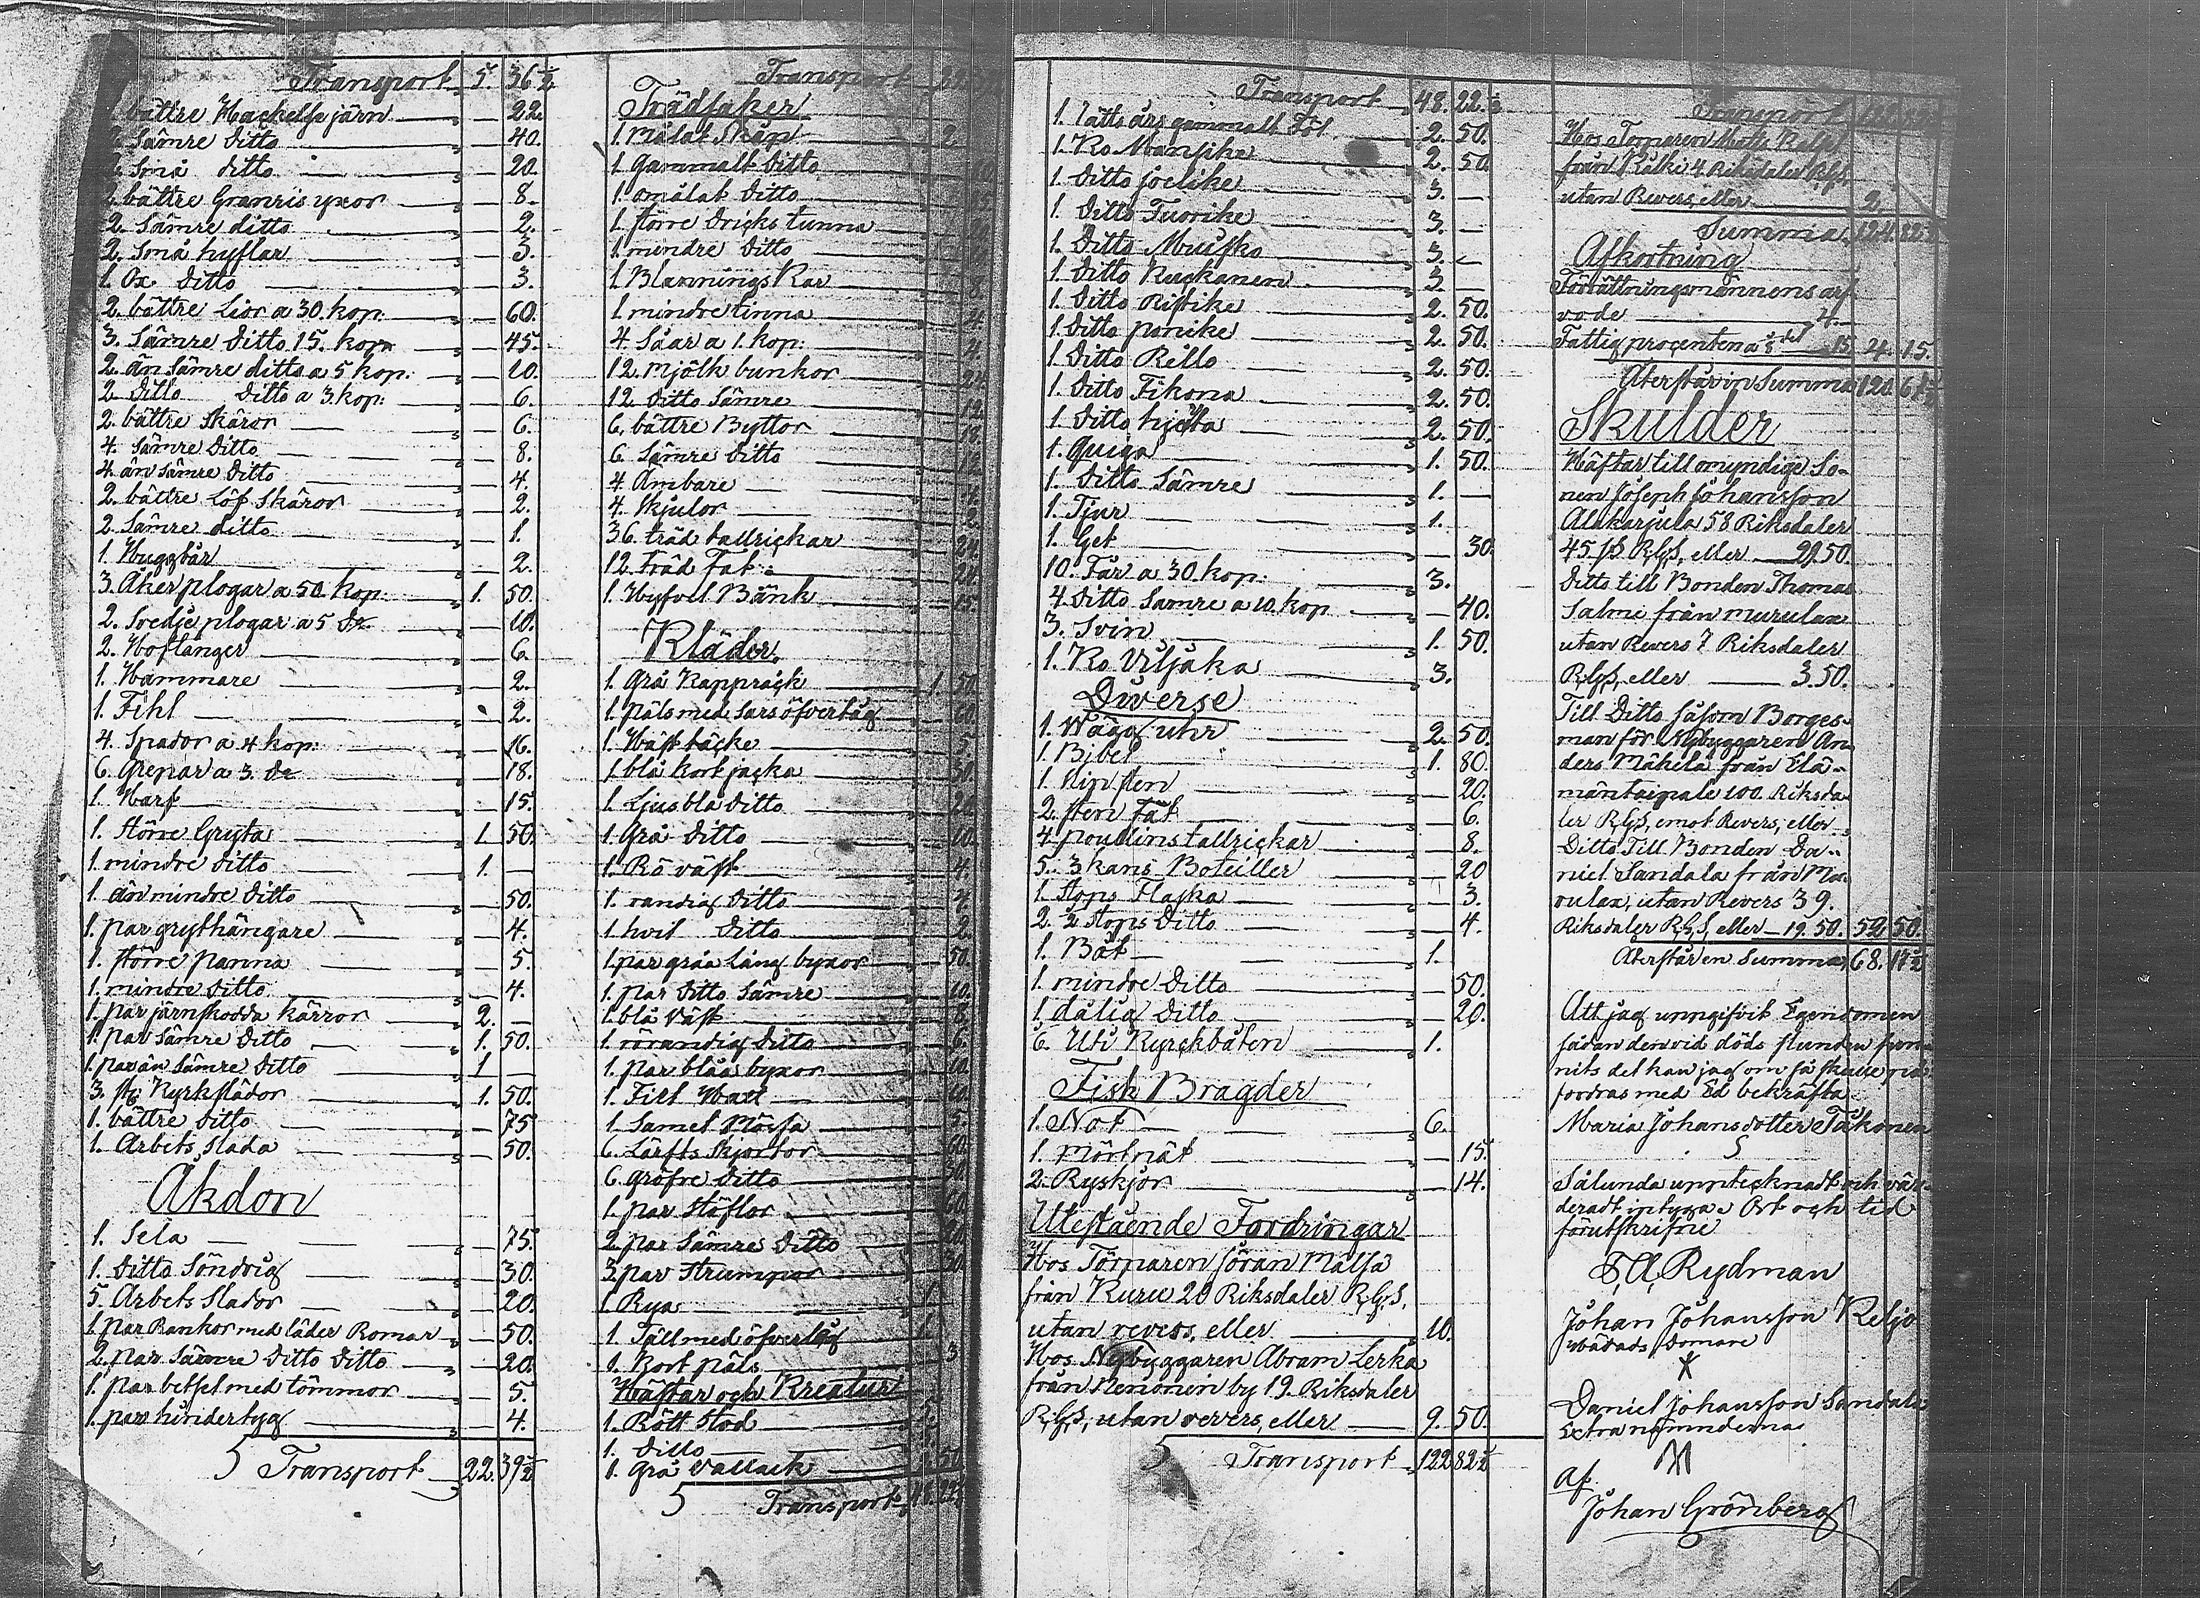 Transport 5. 36 ½
bättre Hackelse järn — 22.
Sämre Ditto — 40.
2. Små ditto — 20.
2. bättre Granris yxor — 8.
2. Sämre ditto — 2.
2. Små hyflar — 3.
1. Ox Ditto — 3.
2. bättre Lior a 30. kop: — 60.
3. Sämre Ditto 15. kop — 45.
2. än Sämre ditto a 5 kop. — 10.
2 Ditto Ditto a 3. kop: — 6.
2. bättre Skäror — 6.
4. Sämre Ditto — 8.
4. än sämre Ditto — 4.
2. bättre Löf Skäror — 2.
2. Sämre ditto — 1.
1. Huggbår — 2.
3. Åker plogar a 50. kop: 1. 50.
2. Svedje plogar a 5 de — 10.
2. Hoftänger — 6.
1. Hammare — 2.
1. Fihl — 2.
4. Spador a 4 kop: — 16.
6. Grepar a 3. de — 18.
1. Harf — 15.
1. större Gryta 1. 50.
1. mindre ditto 1. —
1. än mindre ditto — 50.
1. par grythängare — 4.
1. större Panna — 5.
1. mindre Ditto — 4.
1. par järnskodda kärror 2. —
1. par Sämre Ditto 1. 50.
1. par än Sämre Ditto 1 —
3. st. Kyrkslädor 1. 50.
1. bättre Ditto — 75
1. Arbets slada — 50.
Åkdon
1. Sela — 75.
1. Ditto Söndrig — 30.
5. Arbets Slador — 20.
1. par Rankor med läder Romar — 50.
2. par Sämre Ditto Ditto — 20.
1. par betsel med tömmor — 5.
1. par hindertyg — 4.
S Transport 22. 39 ½
Transport
Trädsaker
1. Målat Skåp 2.
1 gammalt Ditto
1 omålat Ditto
1. större Dricks tunna
1. mindre Ditto
1 Blannings Kar 8.
1. mindre tinna 4.
4. Såar a 1. kop: 4.
12. mjölk bunkor 24.
12. Ditto Sämre 12.
6. bättre Byttor 18.
6 Sämre Ditto 12.
4. Ämbare 4.
4. Skjulor 2.
36. träd tallrickar 24.
12. träd Fat
1. Hyfvel Bänk 15.
Kläder.
1. Grå Kapprack 1. 50.
1. päls med Sars öfvertåg 60.
1. Häst täcke 5.
1. blå kort jacka 30.
1. Ljusblå ditto
1. Grå Ditto 10.
1. Rö väst 4.
1. randig Ditto 4
1. hvit Ditto 2.
1. par gråa Lång byxor 50.
1. par Ditto Sämre 10.
1. blå Väst
1. rörandig Ditto 6.
1. par blåa byxor 10.
1. Filt Hatt
1. Samet Mössa 5.
6. Lärfts Skjortor 60.
6. gröfre Ditto 30.
1. par Stöflor 60.
2. par Sämre Ditto
3. par Strumpor 30.
1. Rya 1.
1. Fäll med öfvertåg 1.
1. Kort päls 3
Hästar och Kreatur
1. Rött Stod 5.
1. Ditto 5.
1. Grå Vallack 50.
S Transport 48. 22 ½
Transport 48. 22. ½
1. 1ätts års gammalt Föl 2. 50.
1. Ko Mansike 2. 50.
1. Ditto joelike 3. —
1. Ditto Tuorike 3. —
1. Ditto Muisko 3. —
1. Ditto Kuckanen 3. —
1. Ditto Ristike 2. 50.
1. Ditto ponike 2. 50.
1. Ditto Rello 2. 50.
1. Ditto Fikona 2. 50.
1. Ditto 2. 50.
1. Quiga 1. 50.
1. Ditto Sämre 1. —
1. Tjur 1.
1. Get — 30.
10. Får a 30. kop: 3.
4. Ditto Samre a 10. kop — 40.
3. Svin 1. 50.
1. Ko Viljaka 3.
Diverse
1. Wägg uhr 2. 50.
1. Bibel 1. 80.
1. Slip sten — 20.
2. sten fat — 6.
4. poudlins tallrickar — 8.
5. 3 kans Boteiller — 20
1. stops Flaska — 3.
2. ½ stops Ditto — 4.
1. Båt 1.
1. mindre Ditto — 50.
1. dålig Ditto — 20.
6. Uti Kyrckbåten 1.
Fisk Bragder
1. Not 6.
1. Mörtnät — 15.
2. Ryskjor — 14.
Utestående Fordringar
Hos Torparen Göran Mälsä
från Kuru 20 Riksdaler R,G,S,
utan revers, eller 10.
Hos Nybyggaren Abram Lerka
från Nenonin by 19. Riksdaler
R,G,S, utan revers, eller 9. 50.
S Transport 122 82 ½
Transport 122 82 ½
Hos Torparen Matts
från 4 Riksdaler R,G,S,
utan Revers, eller 2.
Summa 124. 82 ½
Afkortning
Förrättningsmännens arf
vode 4.
Fattig procenten a ⅛ del 15 4. 15.
Återstår in Summa 120. 67 ½
Skulder
Häftar till omyndige So-
nen Joseph Johansson
Alakarjula 58 Riksdaler
45 ß R,G,S, eller — 29.50.
Ditto till Bonden Thomas
Salmi från murulax
utan Revers 7 Riksdaler
R,G,S, eller — 3.50.
Till Ditto såsom Borges-
man för Nybyggaren An-
ders Mähilä från Elä-
mäntaipale 100. Riksda-
ler R,G,S, emot Revers, eller
Ditto Till Bonden Da-
niel Sandala från Mu-
rulax, utan Revers 39.
Riksdaler R,G,S, eller — 19.50. 52. 50.
Återstår en Summa 68. 17 ½
Att jag uppgifvit Egendomen
sådan den vid döds stunden fun-
nits det kan jag om så skulle
fordras med Ed bekräfta.
Maria Johansdotter Takonen
S
Sålunda upptecknadt och vär-
deradt intyga. Ort och tid
förutskrifne
F, A, Rydman
Johan Johansson Keljo
Härads Domare
X
Daniel Johansson Sandala
Extra nämndeman
af
Johan Grönberg